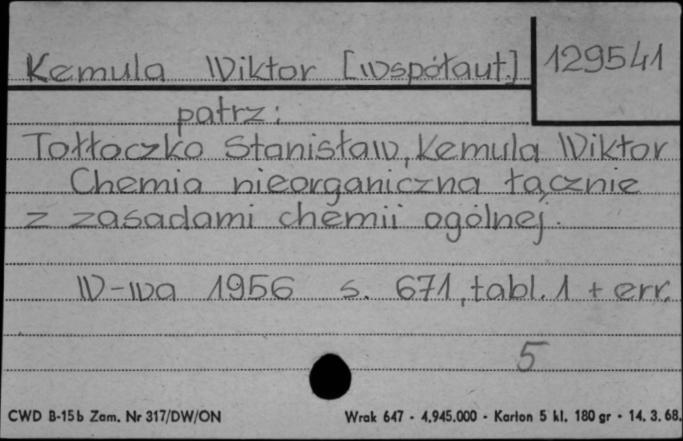 Kemula Wiktor [współaut.] 129541
patrz:
Tołłoczko Stanisław, Kemula Wiktor
Chemia nieorganiczna łącznie
z zasadami chemii ogólnej.
W-wa 1956 s. 671, tabl. 1 + err.
5
CWD B-15b Zam. Nr 317/DW/ON Wrak 647 - 4.945.000 - Karton 5 kl. 180 gr - 14. 3. 68.